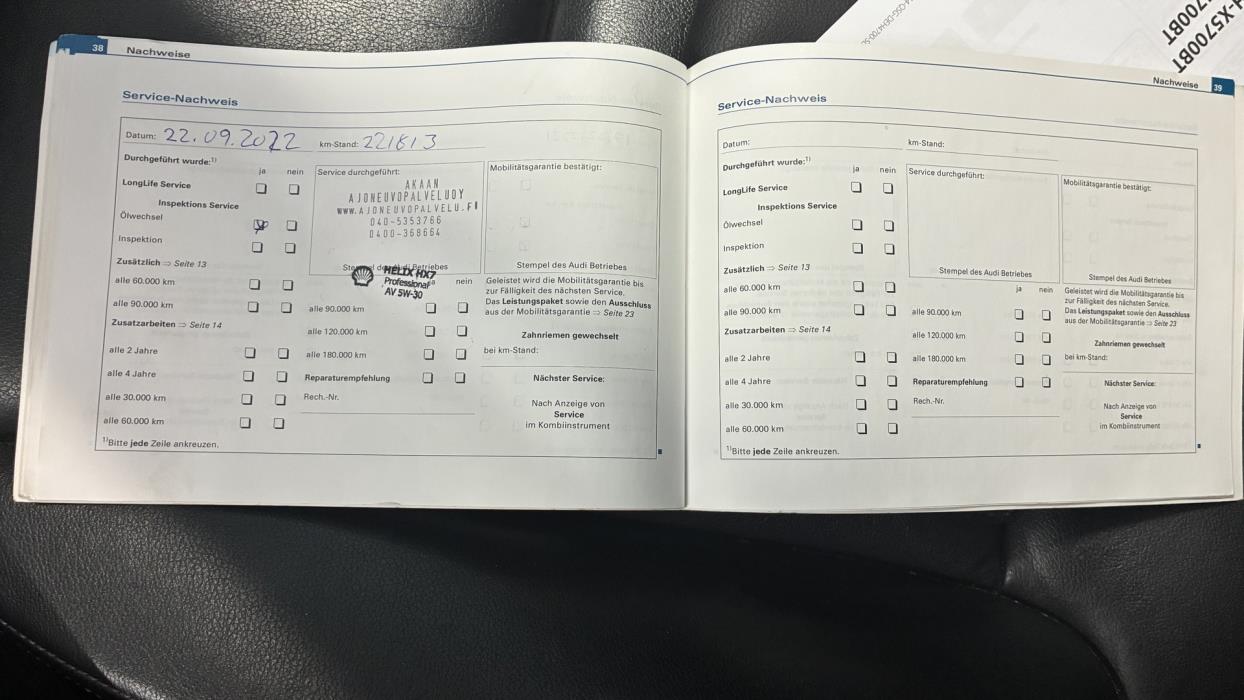 38 Nachweise
Service-Nachweis
Datum: 22.09.2022 km-Stand: 221813
Durchgeführt wurde:1)
ja nein
LongLife Service
Inspektions Service
Ölwechsel
Inspektion
Zusätzlich ⇒ Seite 13
alle 60.000 km
alle 90.000 km
Zusatzarbeiten ⇒ Seite 14
alle 2 Jahre
alle 4 Jahre
alle 30.000 km
alle 60.000 km
1)Bitte jede Zeile ankreuzen.
Service durchgeführt:
AKAAN
AJONEUVOPALVELUOY
WWW.AJONEUVOPALVELU.FI
040-5353766
0400-368664
Stempel des Audi Betriebes
HELIX HX7
Professional
AV 5W-30
nein
alle 90.000 km
alle 120.000 km
alle 180.000 km
Reparaturempfehlung
Rech.-Nr.
Mobilitätsgarantie bestätigt:
Stempel des Audi Betriebes
Geleistet wird die Mobilitätsgarantie bis
zur Fälligkeit des nächsten Service.
Das Leistungspaket sowie den Ausschluss
aus der Mobilitätsgarantie ⇒ Seite 23
Zahnriemen gewechselt
bei km-Stand:
Nächster Service:
Nach Anzeige von
Service
im Kombiinstrument
Nachweise 39
Service-Nachweis
Datum: km-Stand:
Durchgeführt wurde:1)
ja nein
LongLife Service
Inspektions Service
Ölwechsel
Inspektion
Zusätzlich ⇒ Seite 13
alle 60.000 km
alle 90.000 km
Zusatzarbeiten ⇒ Seite 14
alle 2 Jahre
alle 4 Jahre
alle 30.000 km
alle 60.000 km
1)Bitte jede Zeile ankreuzen.
Service durchgeführt:
Stempel des Audi Betriebes
ja nein
alle 90.000 km
alle 120.000 km
alle 180.000 km
Reparaturempfehlung
Rech.-Nr.
Mobilitätsgarantie bestätigt:
Stempel des Audi Betriebes
Geleistet wird die Mobilitätsgarantie bis
zur Fälligkeit des nächsten Service.
Das Leistungspaket sowie den Ausschluss
aus der Mobilitätsgarantie ⇒ Seite 23
Zahnriemen gewechselt
bei km-Stand:
Nächster Service:
Nach Anzeige von
Service
im Kombiinstrument
-X5700BT
700BT